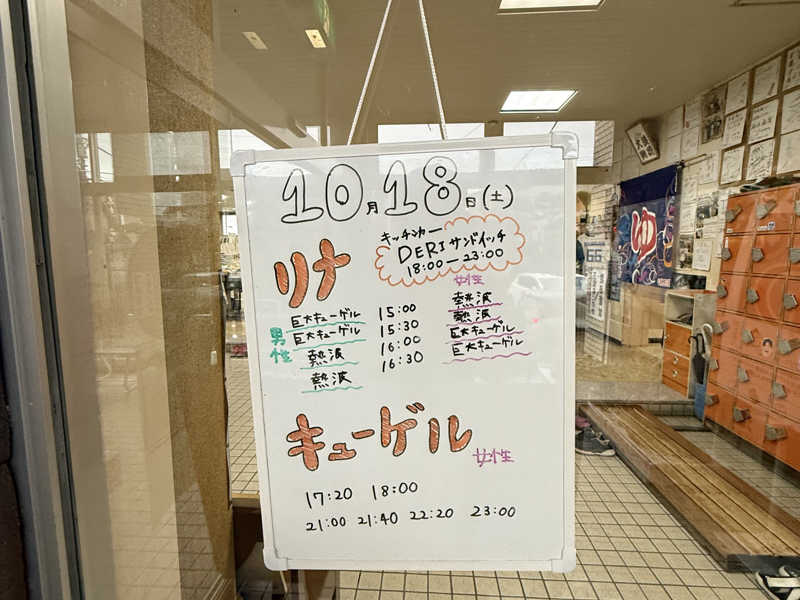 10月18日(土)
キッチンカー
DERIサンドイッチ
18:00－23:00
リナ
男性
女性
巨大キューゲル 15:00 熱波
巨大キューゲル 15:30 熱波
熱波 16:00 巨大キューゲル
熱波 16:30 巨大キューゲル
キューゲル 女性
17:20 18:00
21:00 21:40 22:20 23:00
ゆ